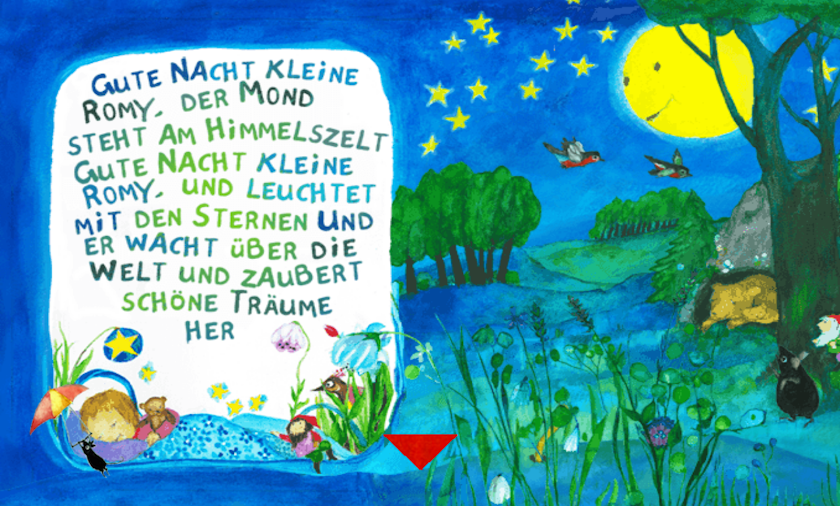 GUTE NACHT KLEINE
ROMY. DER MOND
STEHT AM HIMMELSZELT
GUTE NACHT KLEINE
ROMY. UND LEUCHTET
MIT DEN STERNEN UND
ER WACHT ÜBER DIE
WELT UND ZAUBERT
SCHÖNE TRÄUME
HER